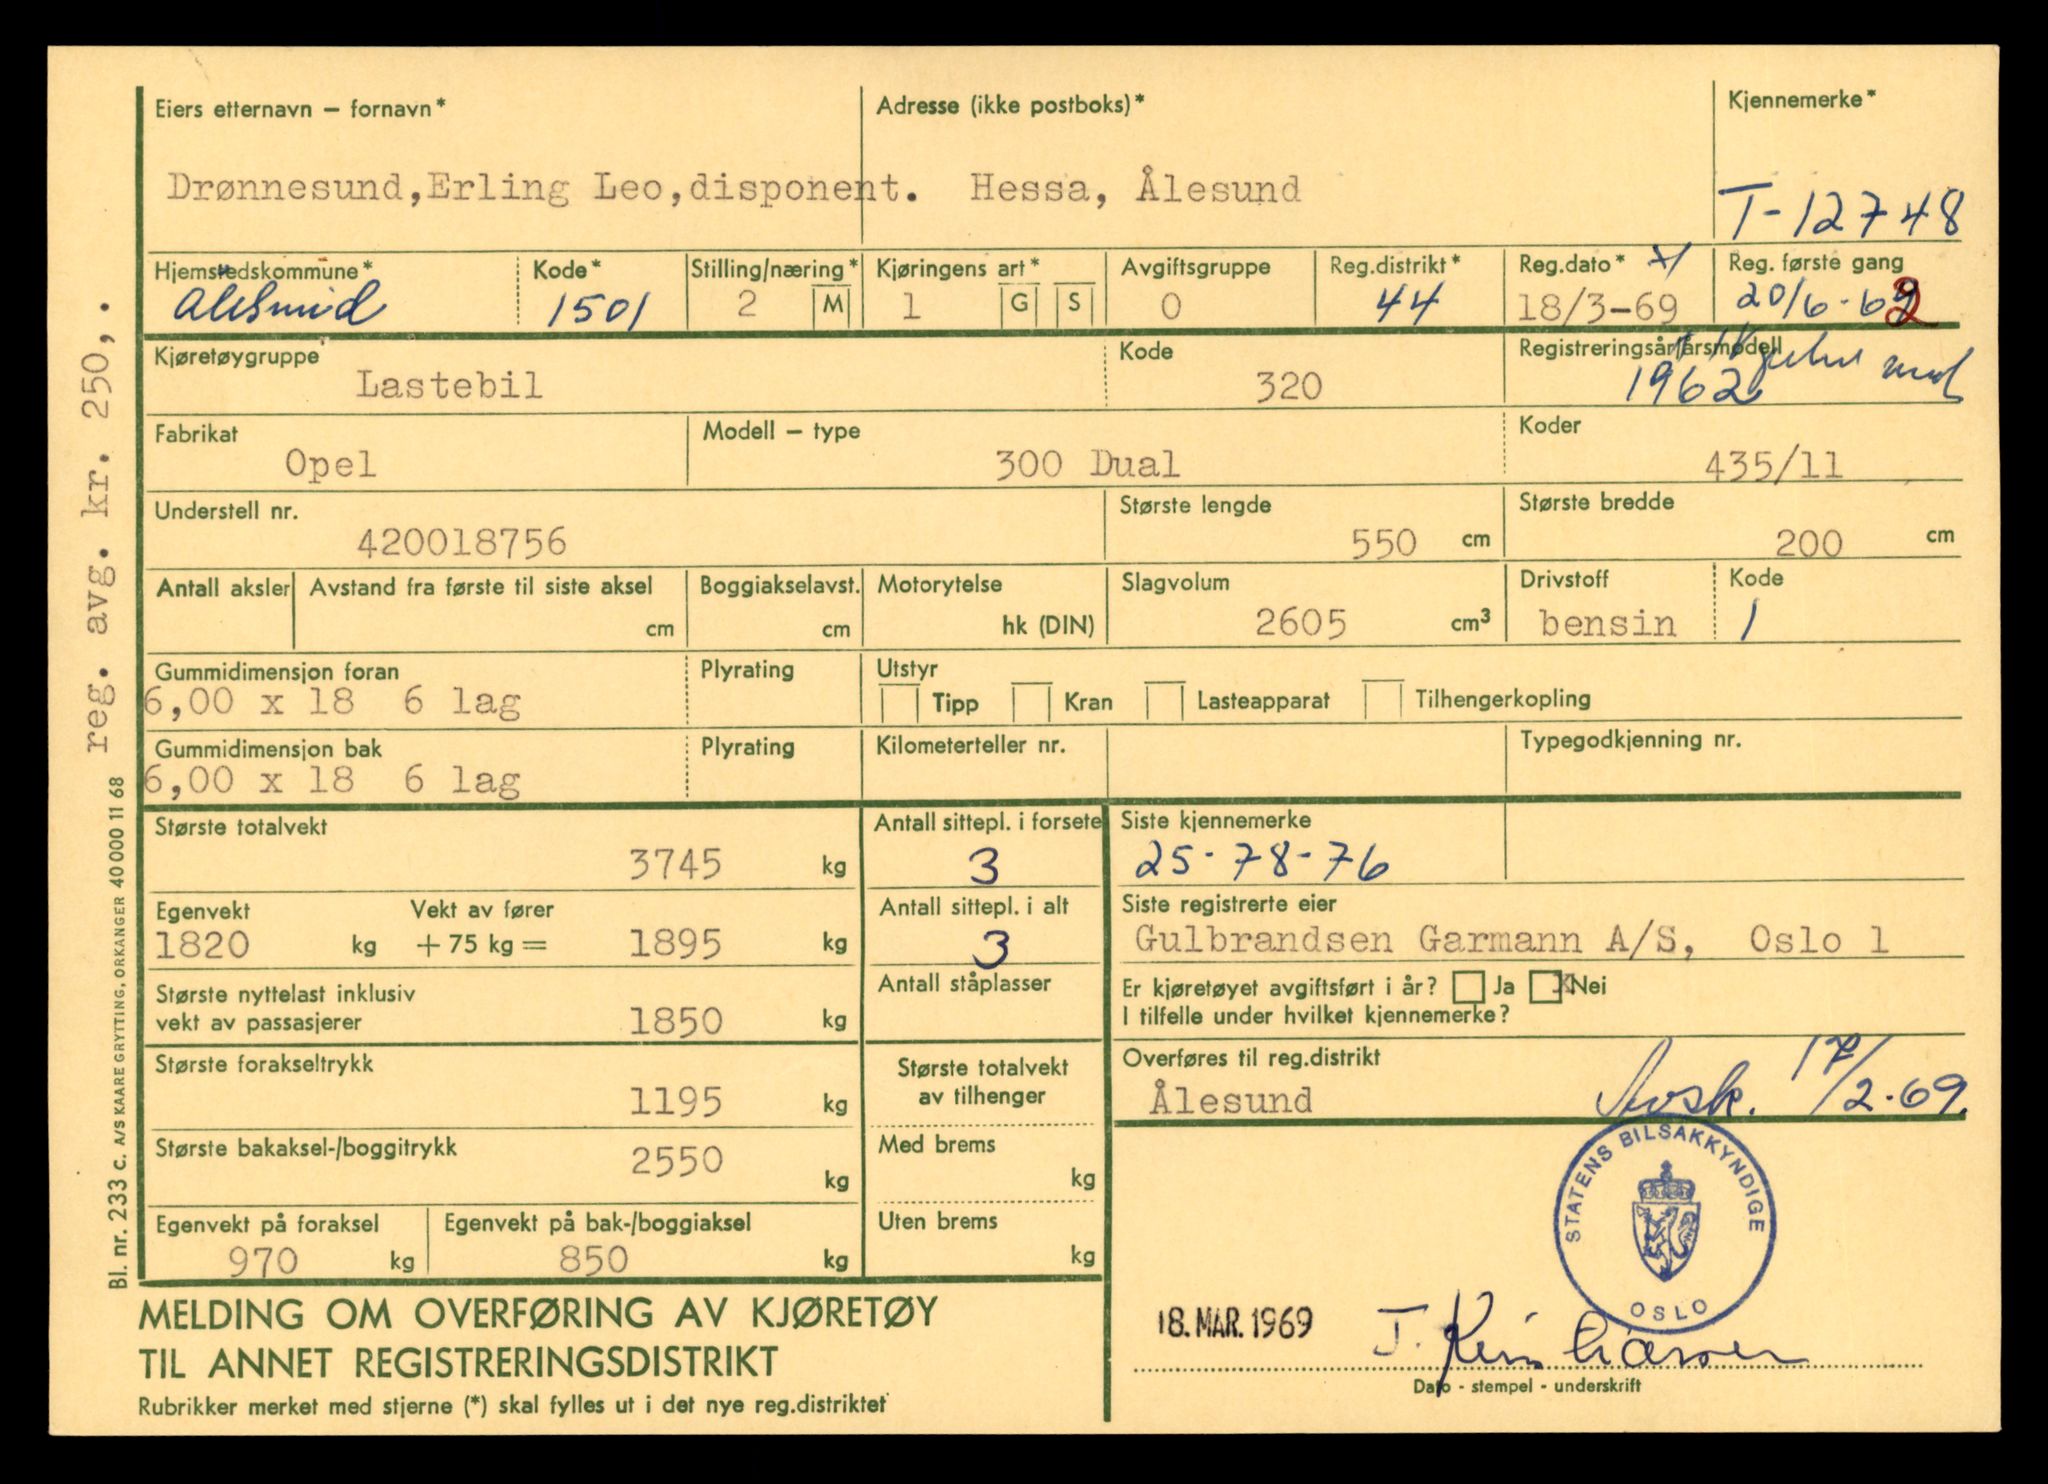 Eiers etternavn – fornavn* Adresse (ikke postboks)* Kjennemerke*
Drønnesund,Erling Leo,disponent. Hessa, Ålesund T-12748
Hjemstedskommune* Kode* Stilling/næring* Kjøringens art* Avgiftsgruppe Reg.distrikt* Reg.dato* Reg. første gang
Ålesund 1501 2 M 1 G S 0 44 18/3-69 20/6-62
Kjøretøygruppe Kode Registreringsår/årsmodell
Lastebil 320 1962
Fabrikat Modell – type Koder
Opel 300 Dual 435/11
Understell nr. Største lengde Største bredde
420018756 550 cm 200 cm
Antall aksler Avstand fra første til siste aksel Boggiakselavst. Motorytelse Slagvolum Drivstoff Kode
cm cm hk (DIN) 2605 cm³ bensin 1
Gummidimensjon foran Plyrating Utstyr
6,00 x 18 6 lag Tipp Kran Lasteapparat Tilhengerkopling
Gummidimensjon bak Plyrating Kilometerteller nr. Typegodkjenning nr.
6,00 x 18 6 lag
Største totalvekt Antall sittepl. i forsete Siste kjennemerke
3745 kg 3 25-78-76
Egenvekt Vekt av fører Antall sittepl. i alt Siste registrerte eier
1820 kg + 75 kg = 1895 kg 3 Gulbrandsen Garmann A/S, Oslo 1
Største nyttelast inklusiv Antall ståplasser Er kjøretøyet avgiftsført i år? Ja x Nei
vekt av passasjerer 1850 kg I tilfelle under hvilket kjennemerke?
Største forakseltrykk Største totalvekt Overføres til reg.distrikt
1195 kg av tilhenger Ålesund 17/2-69.
Største bakaksel-/boggitrykk Med brems
2550 kg kg
Egenvekt på foraksel Egenvekt på bak-/boggiaksel Uten brems
970 kg 850 kg kg
STATENS BILSAKKYNDIGE
OSLO
MELDING OM OVERFØRING AV KJØRETØY
18. MAR. 1969
TIL ANNET REGISTRERINGSDISTRIKT
Dato - stempel - underskrift
Rubrikker merket med stjerne (*) skal fylles ut i det nye reg.distriktet
reg. avg. kr. 250,.
Bl. nr. 233 c. A/S KAARE GRYTTING, ORKANGER 40 000 11 68